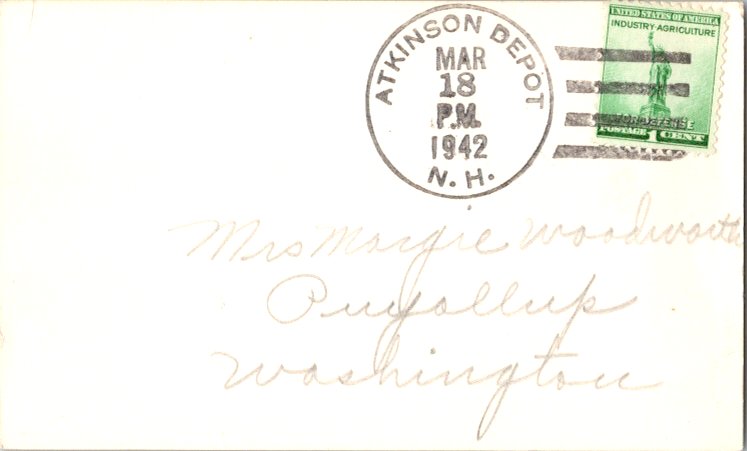 ATKINSON DEPOT
MAR
18
P.M.
1942
N. H.
UNITED STATES OF AMERICA
INDUSTRY-AGRICULTURE
FOR DEFENSE
POSTAGE 1 CENT
Mrs Margie Woodworth
Puyallup
Washington